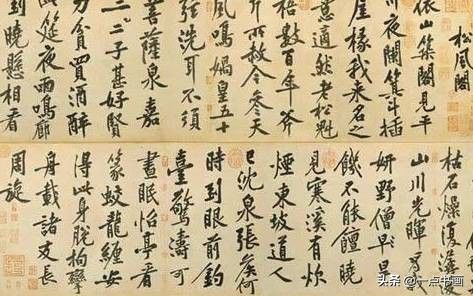 松風閣
依山築閣見平
川夜闌箕斗插
屋椽我來名之
意適然老松魁
梧數百年斧
斤所赦今參天
風鳴媧皇五十
弦洗耳不須
菩薩泉嘉
二三子甚好賢
力貧買酒醉
此筵夜雨鳴廊
到曉懸相看
枯石燥復潺湲
山川光暉為我
妍野僧旱
饑不能饘曉
見寒溪有炊
煙東坡道人
已沈泉張侯何
時到眼前釣
臺驚濤可
晝眠怡亭看
篆蛟龍纏安
得此身脫拘攣
舟載諸友長
周旋
头条 @一点书画